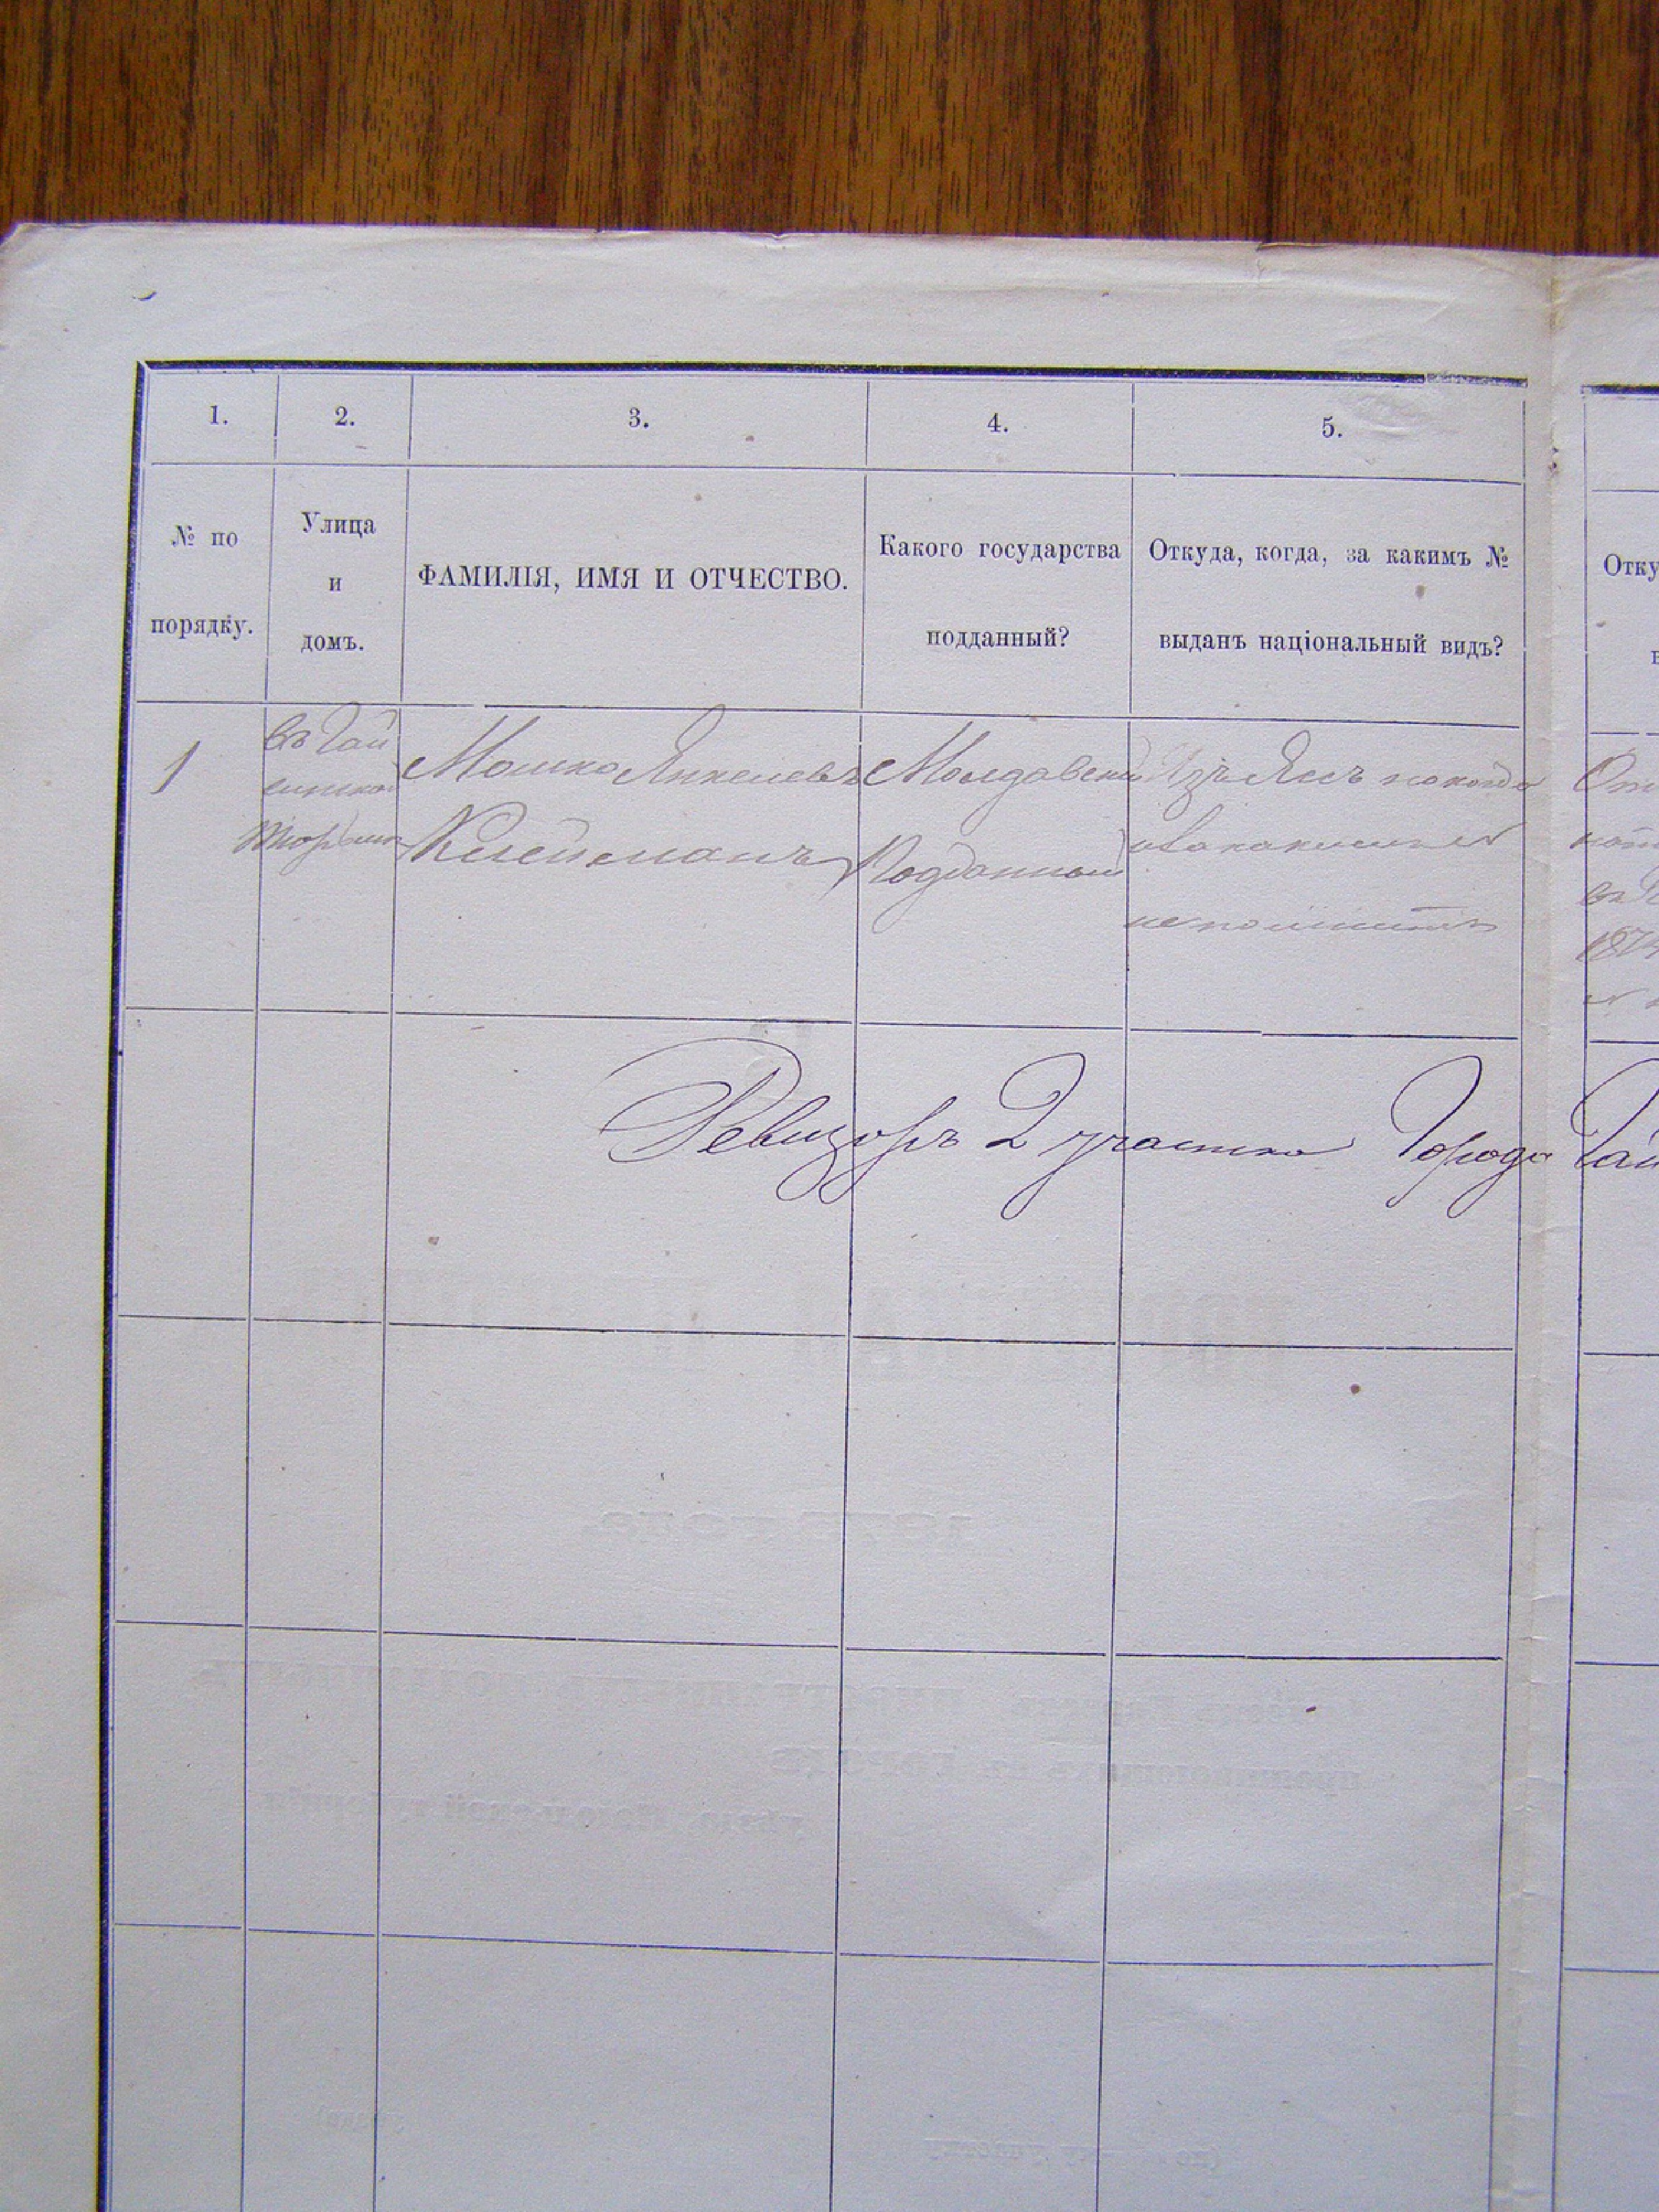 1.
2.
3.
4.
5.
№ по
порядку.
Улица
и
домъ.
ФАМИЛІЯ, ИМЯ И ОТЧЕСТВО.
Какого государства
подданный?
Откуда, когда, за какимъ №
выданъ національный видъ?
Отку
1
въ Гай
синской
тюрьмѣ
Мошко Янкелевъ
Клейманъ
Молдавскій
Подданный
Изъ Яссъ
№
непомнитъ
въ
187
Ревизоръ 2 участка Города Гай